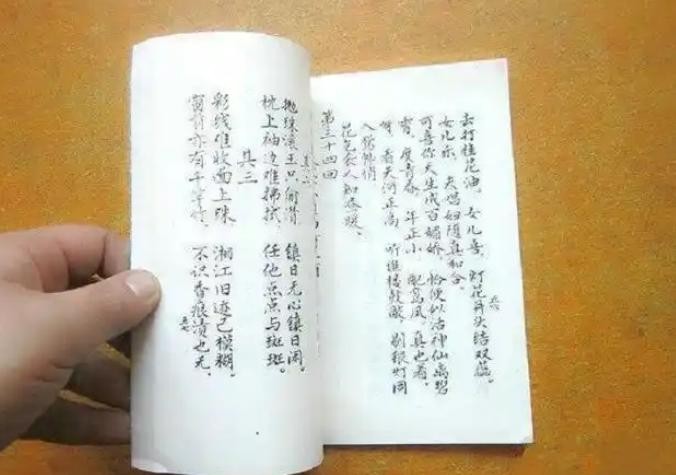 去打桂花油。 女儿喜,灯花并头结双蕊。
五六
女儿乐,夫唱妇随真和合。
可喜你天生成百媚娇,恰便似活神仙离碧
霄。度青春,年正小,配鸾凤,真也着。
呀!看天河正高,听谯楼鼓敲,剔银灯同
入鸳帏悄。
花气袭人知昼暖。
第三十四回
抛珠滚玉只偷潸,镇日无心镇日闲。
枕上袖边难拂拭,任他点点与斑斑。
其三
彩线难收面上珠,湘江旧迹已模糊。
窗前亦有千竿竹,不识香痕渍也无。
五七